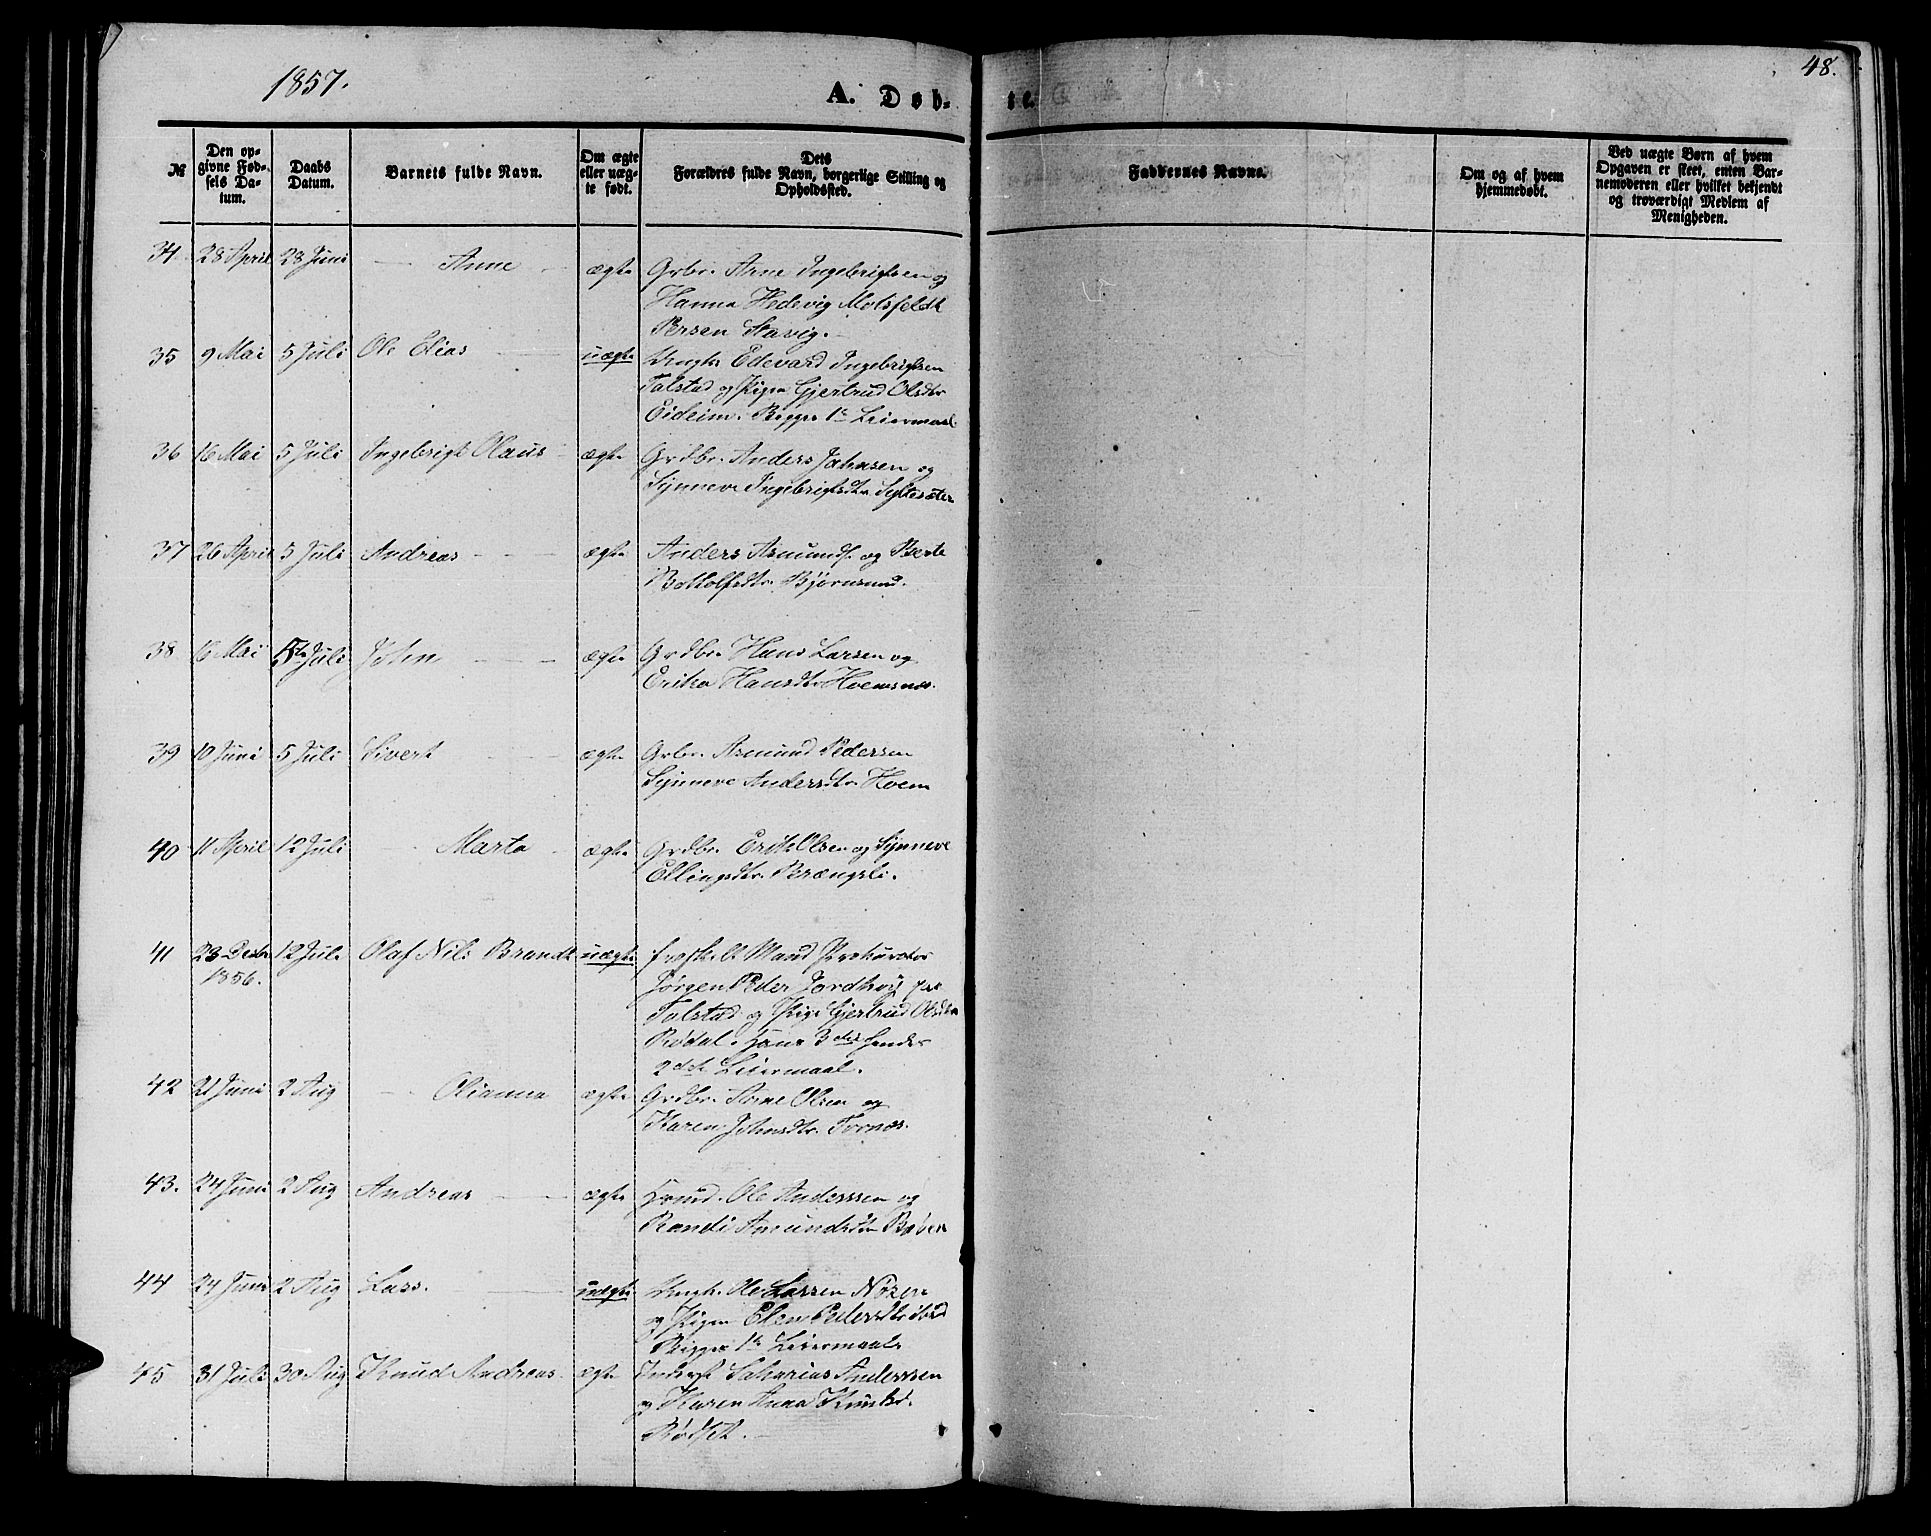 1857.
A. Døb-
te.
48.
№
Den op-
givne Fød-
sels Da-
tum.
Daabs
Datum.
Barnets fulde Navn.
Om ægte
eller uæg-
te født.
Dets
Forældres fulde Navn, borgerlige Stilling og
Opholdssted.
Faddernes Navne.
Om og af hvem
hjemmedøbt.
Ved uægte Børn af hvem
Opgaven er skeet, enten Bar-
nemoderen eller hvilket bekjendt
og troværdigt Medlem af
Menigheden.
34. 28 April 28 Juni Anne ægte Grbr. Arne Ingebrigtsen og
Hanna Hedevig Motsfeldt
Persen Stavig.
35 9 Mai 5 Juli Ole Elias uægte Ungk. Edevard Ingebrigtsen
Talstad og Pigen Gjertrud Olsdtr
Eideim. Begges 1te Leiermaal.
36 16 Mai 5 Juli Ingebrigt Olaus ægte Grdbr. Anders Johnsen og
Synneve Ingebrigtsdtr Syltesæter
37 26 April 5 Juli Andreas ægte Anders Asmunds. og Berte
Bottolfsdtr. Bjørnsund.
38 16 Mai 5te Juli John ægte Grdbr. Hans Larsen og
Erika Hansdtr Hoemsnæs.
39 10 Juni 5 Juli Sivert ægte Grbr. Asmund Pedersen
Synneve Andersdtr. Hoem
40 11 April 12 Juli Marta ægte Grdbr. Erik Olsen og Synneve
Ellingsdtr. Brængsli.
41 23 Decbr 12 Juli Olaf Nils Brandt uægte fraskilt Mand Prokurator
1856.
Jørgen Peder Jordhøy paa
Talstad og Pige Gjertrud Olsdtr
Rødal. Hans 3die hendes
2det Leiermaal.
42 21 Juni 2 Aug Olianna ægte Grdbr. Arne Olsen og
Karen Johnsdtr. Tornes.
43. 24 Juni 2 Aug Andreas ægte Ole Anderssen og
Randi Amundsdtr
44 24 Juni 2 Aug Lars. uægte Ungk. Ole Larsen
og Pigen Elen Pedersdtr
Begges 1te Leiermaal
45 31 Juli 30 Aug Knud Andreas. ægte Inderst Sakarias Anderssen
og Karen Anna Knudsd.
Rødset.